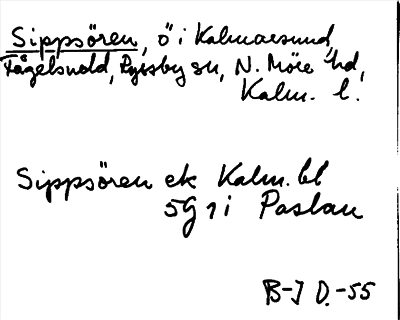 Sippsören, ö i Kalmarsund,
Fågelsudd, Ryssby sn, N. Möre hd,
Kalm. l.
Sippsören ek Kalm. bl
5G 1 i Paslau
B-J D. -55